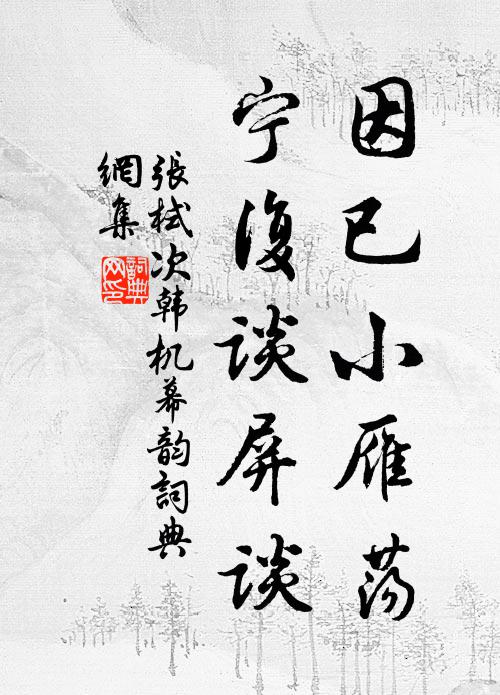 因已小雁荡
宁復谈屏谈
張栻次韩机幕韵詞典
網集
詞典网印